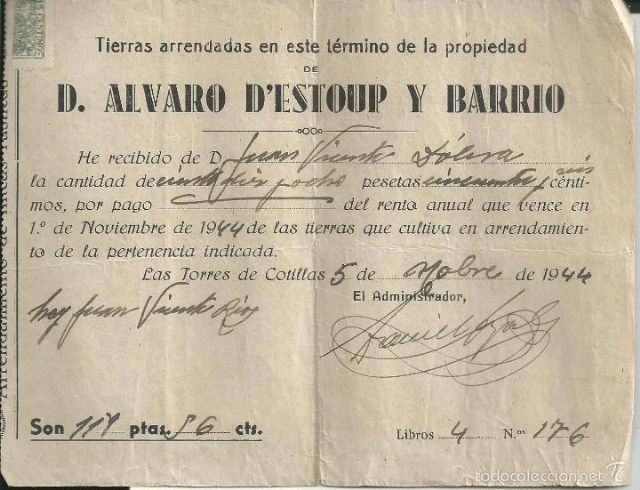 Tierras arrendadas en este término de la propiedad
DE
D. ALVARO D'ESTOUP Y BARRIO
He recibido de D. Juan Vicente Dólera
la cantidad de ciento diez y ocho pesetas cincuenta y seis cénti-
mos, por pago del rento anual que vence en
1.º de Noviembre de 1944 de las tierras que cultiva en arrendamien-
to de la pertenencia indicada.
Las Torres de Cotillas 5 de Nobre de 1944
El Administrador,
hoy Juan Vicente
Son 118 ptas. 56 cts.
Libros 4 N.os 176
todocoleccion.net